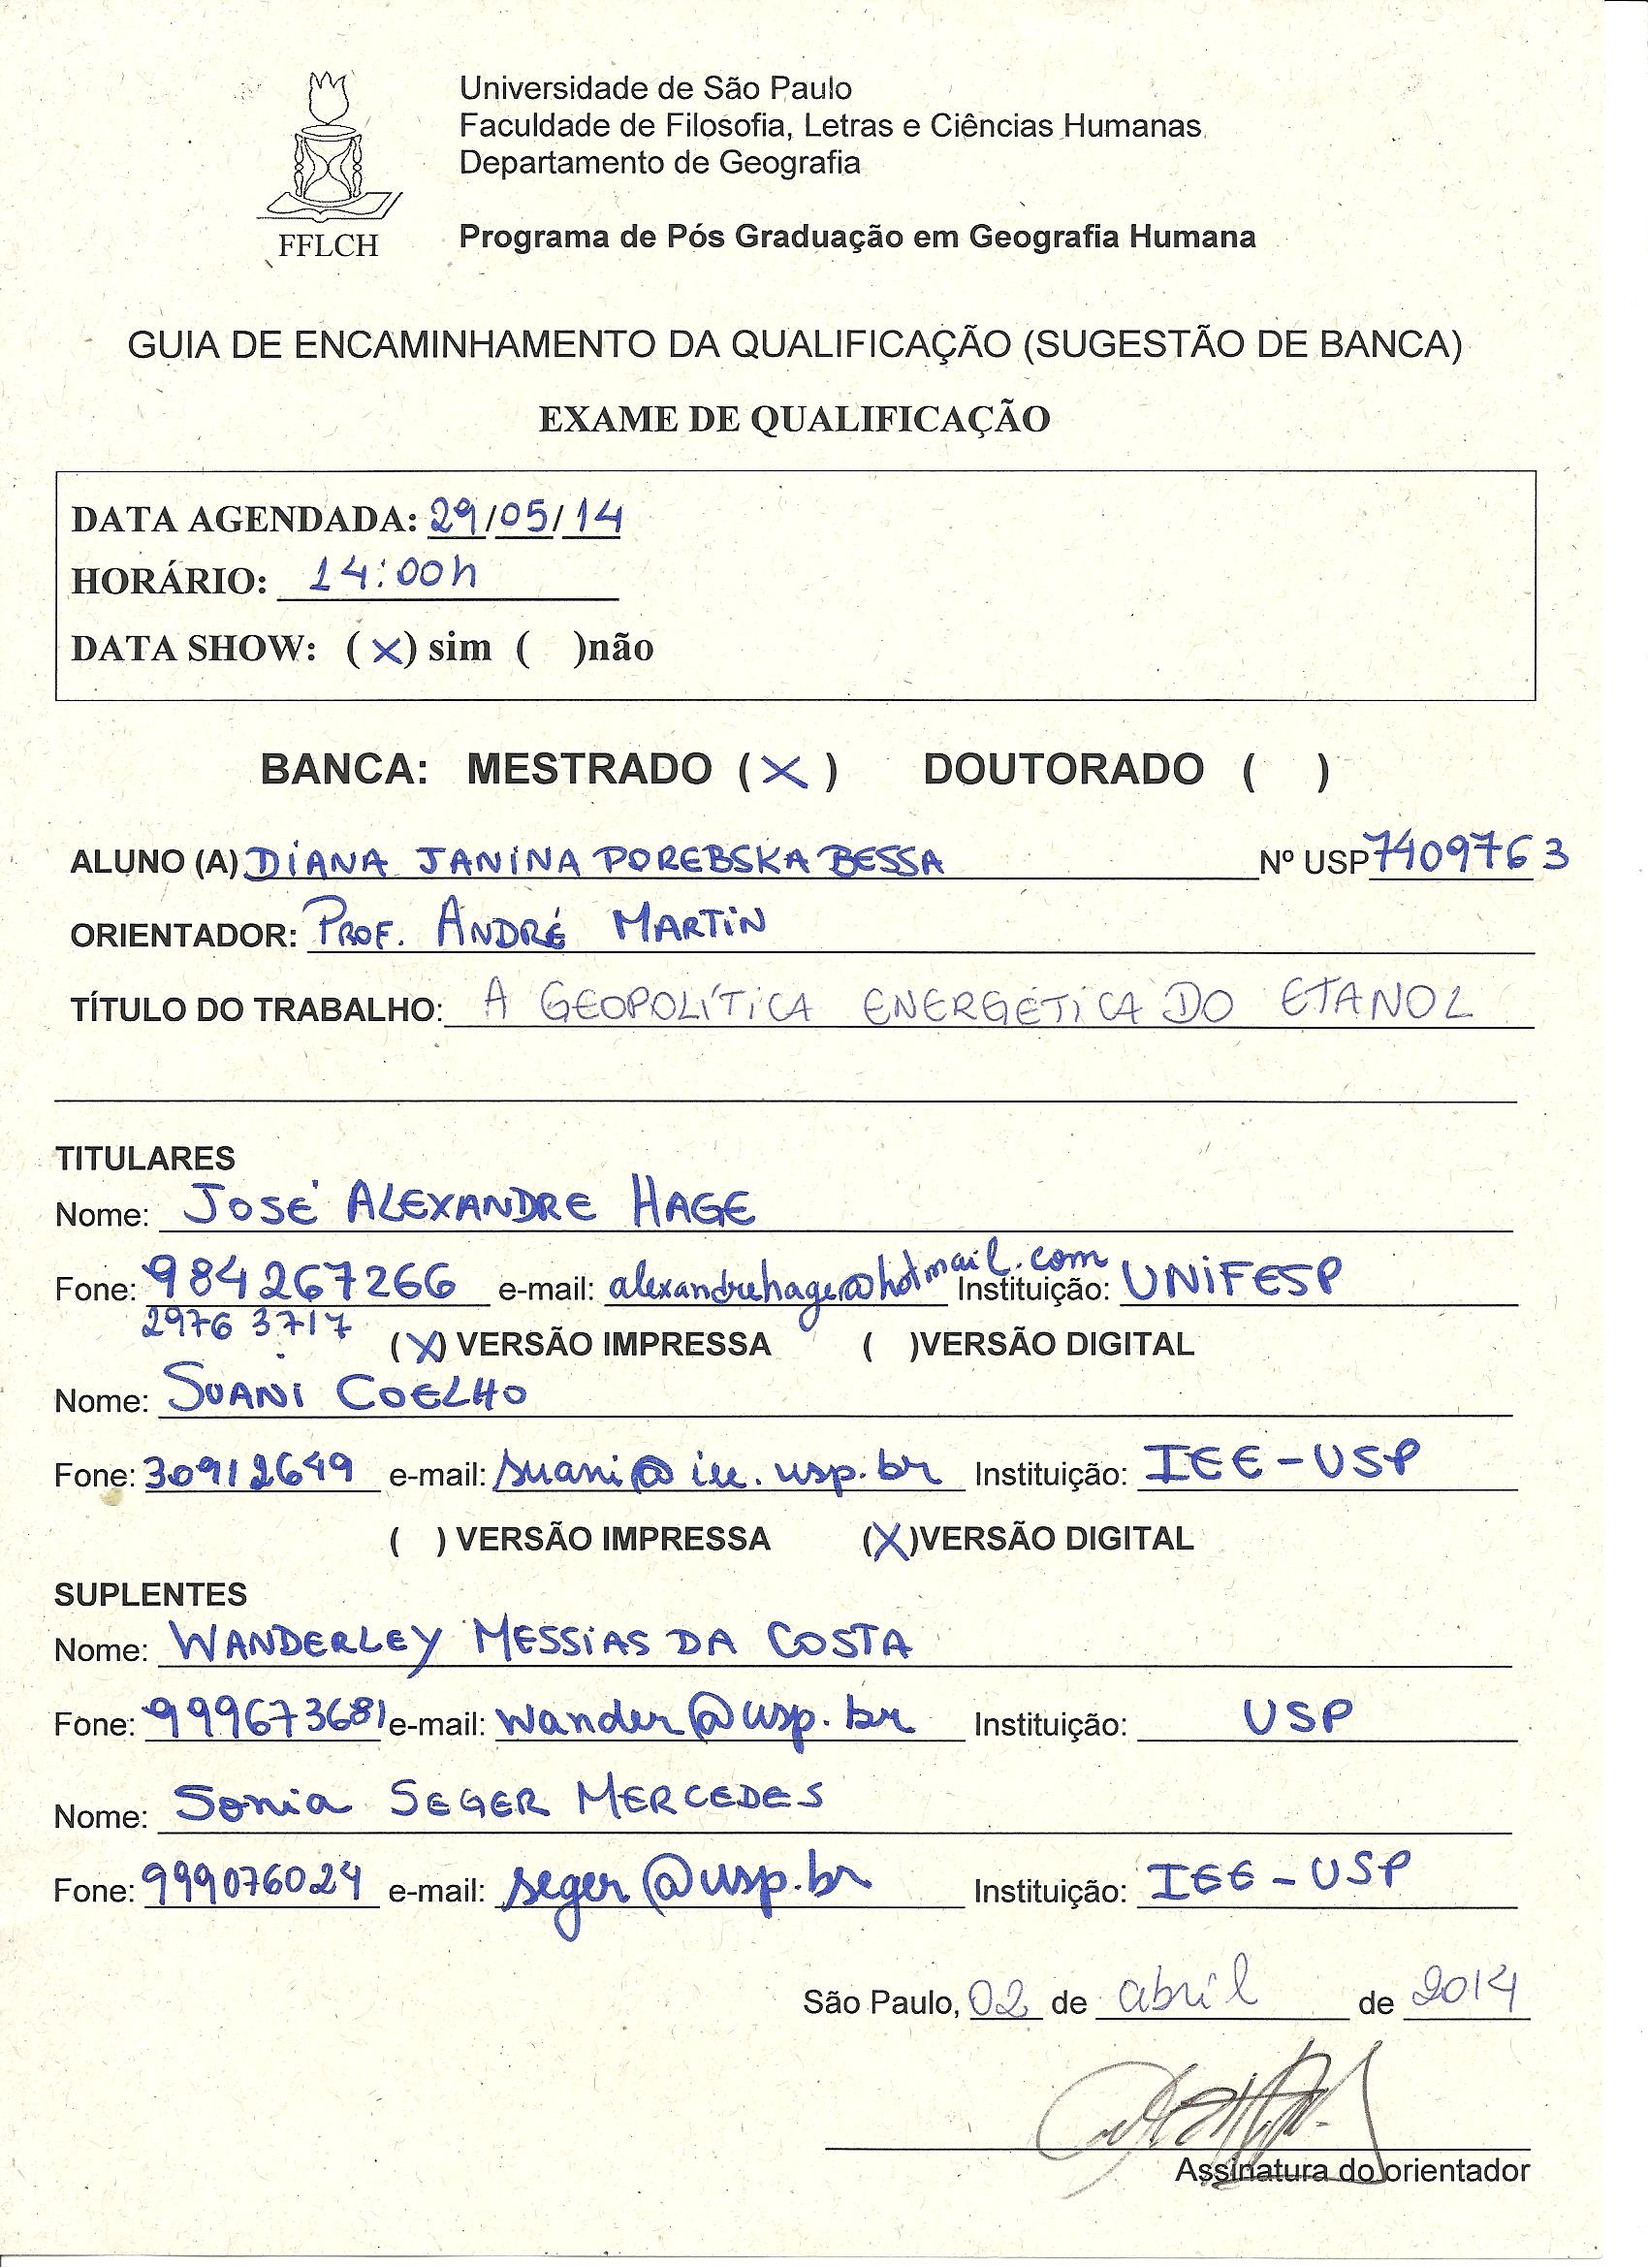 Universidade de São Paulo
Faculdade de Filosofia, Letras e Ciências Humanas
Departamento de Geografia
FFLCH
Programa de Pós Graduação em Geografia Humana
GUIA DE ENCAMINHAMENTO DA QUALIFICAÇÃO (SUGESTÃO DE BANCA)
EXAME DE QUALIFICAÇÃO
DATA AGENDADA: 29/05/14
HORÁRIO: 14:00h
DATA SHOW: (x) sim ( )não
BANCA: MESTRADO (X) DOUTORADO ( )
ALUNO (A) DIANA JANINA POREBSKA BESSA Nº USP 7409763
ORIENTADOR: PROF. ANDRÉ MARTIN
TÍTULO DO TRABALHO: A GEOPOLÍTICA ENERGÉTICA DO ETANOL
TITULARES
Nome: JOSÉ ALEXANDRE HAGE
Fone: 984267266 e-mail: alexandrehage@hotmail.com Instituição: UNIFESP
2976 3717
(X) VERSÃO IMPRESSA ( )VERSÃO DIGITAL
Nome: SUANI COELHO
Fone: 30912649 e-mail: suani@iee.usp.br Instituição: IEE-USP
( ) VERSÃO IMPRESSA (X)VERSÃO DIGITAL
SUPLENTES
Nome: WANDERLEY MESSIAS DA COSTA
Fone: 999673681 e-mail: wander@usp.br Instituição: USP
Nome: Sonia SEGER MERCEDES
Fone: 999076024 e-mail: seger@usp.br Instituição: IEE-USP
São Paulo, 02 de abril de 2014
Assinatura do orientador